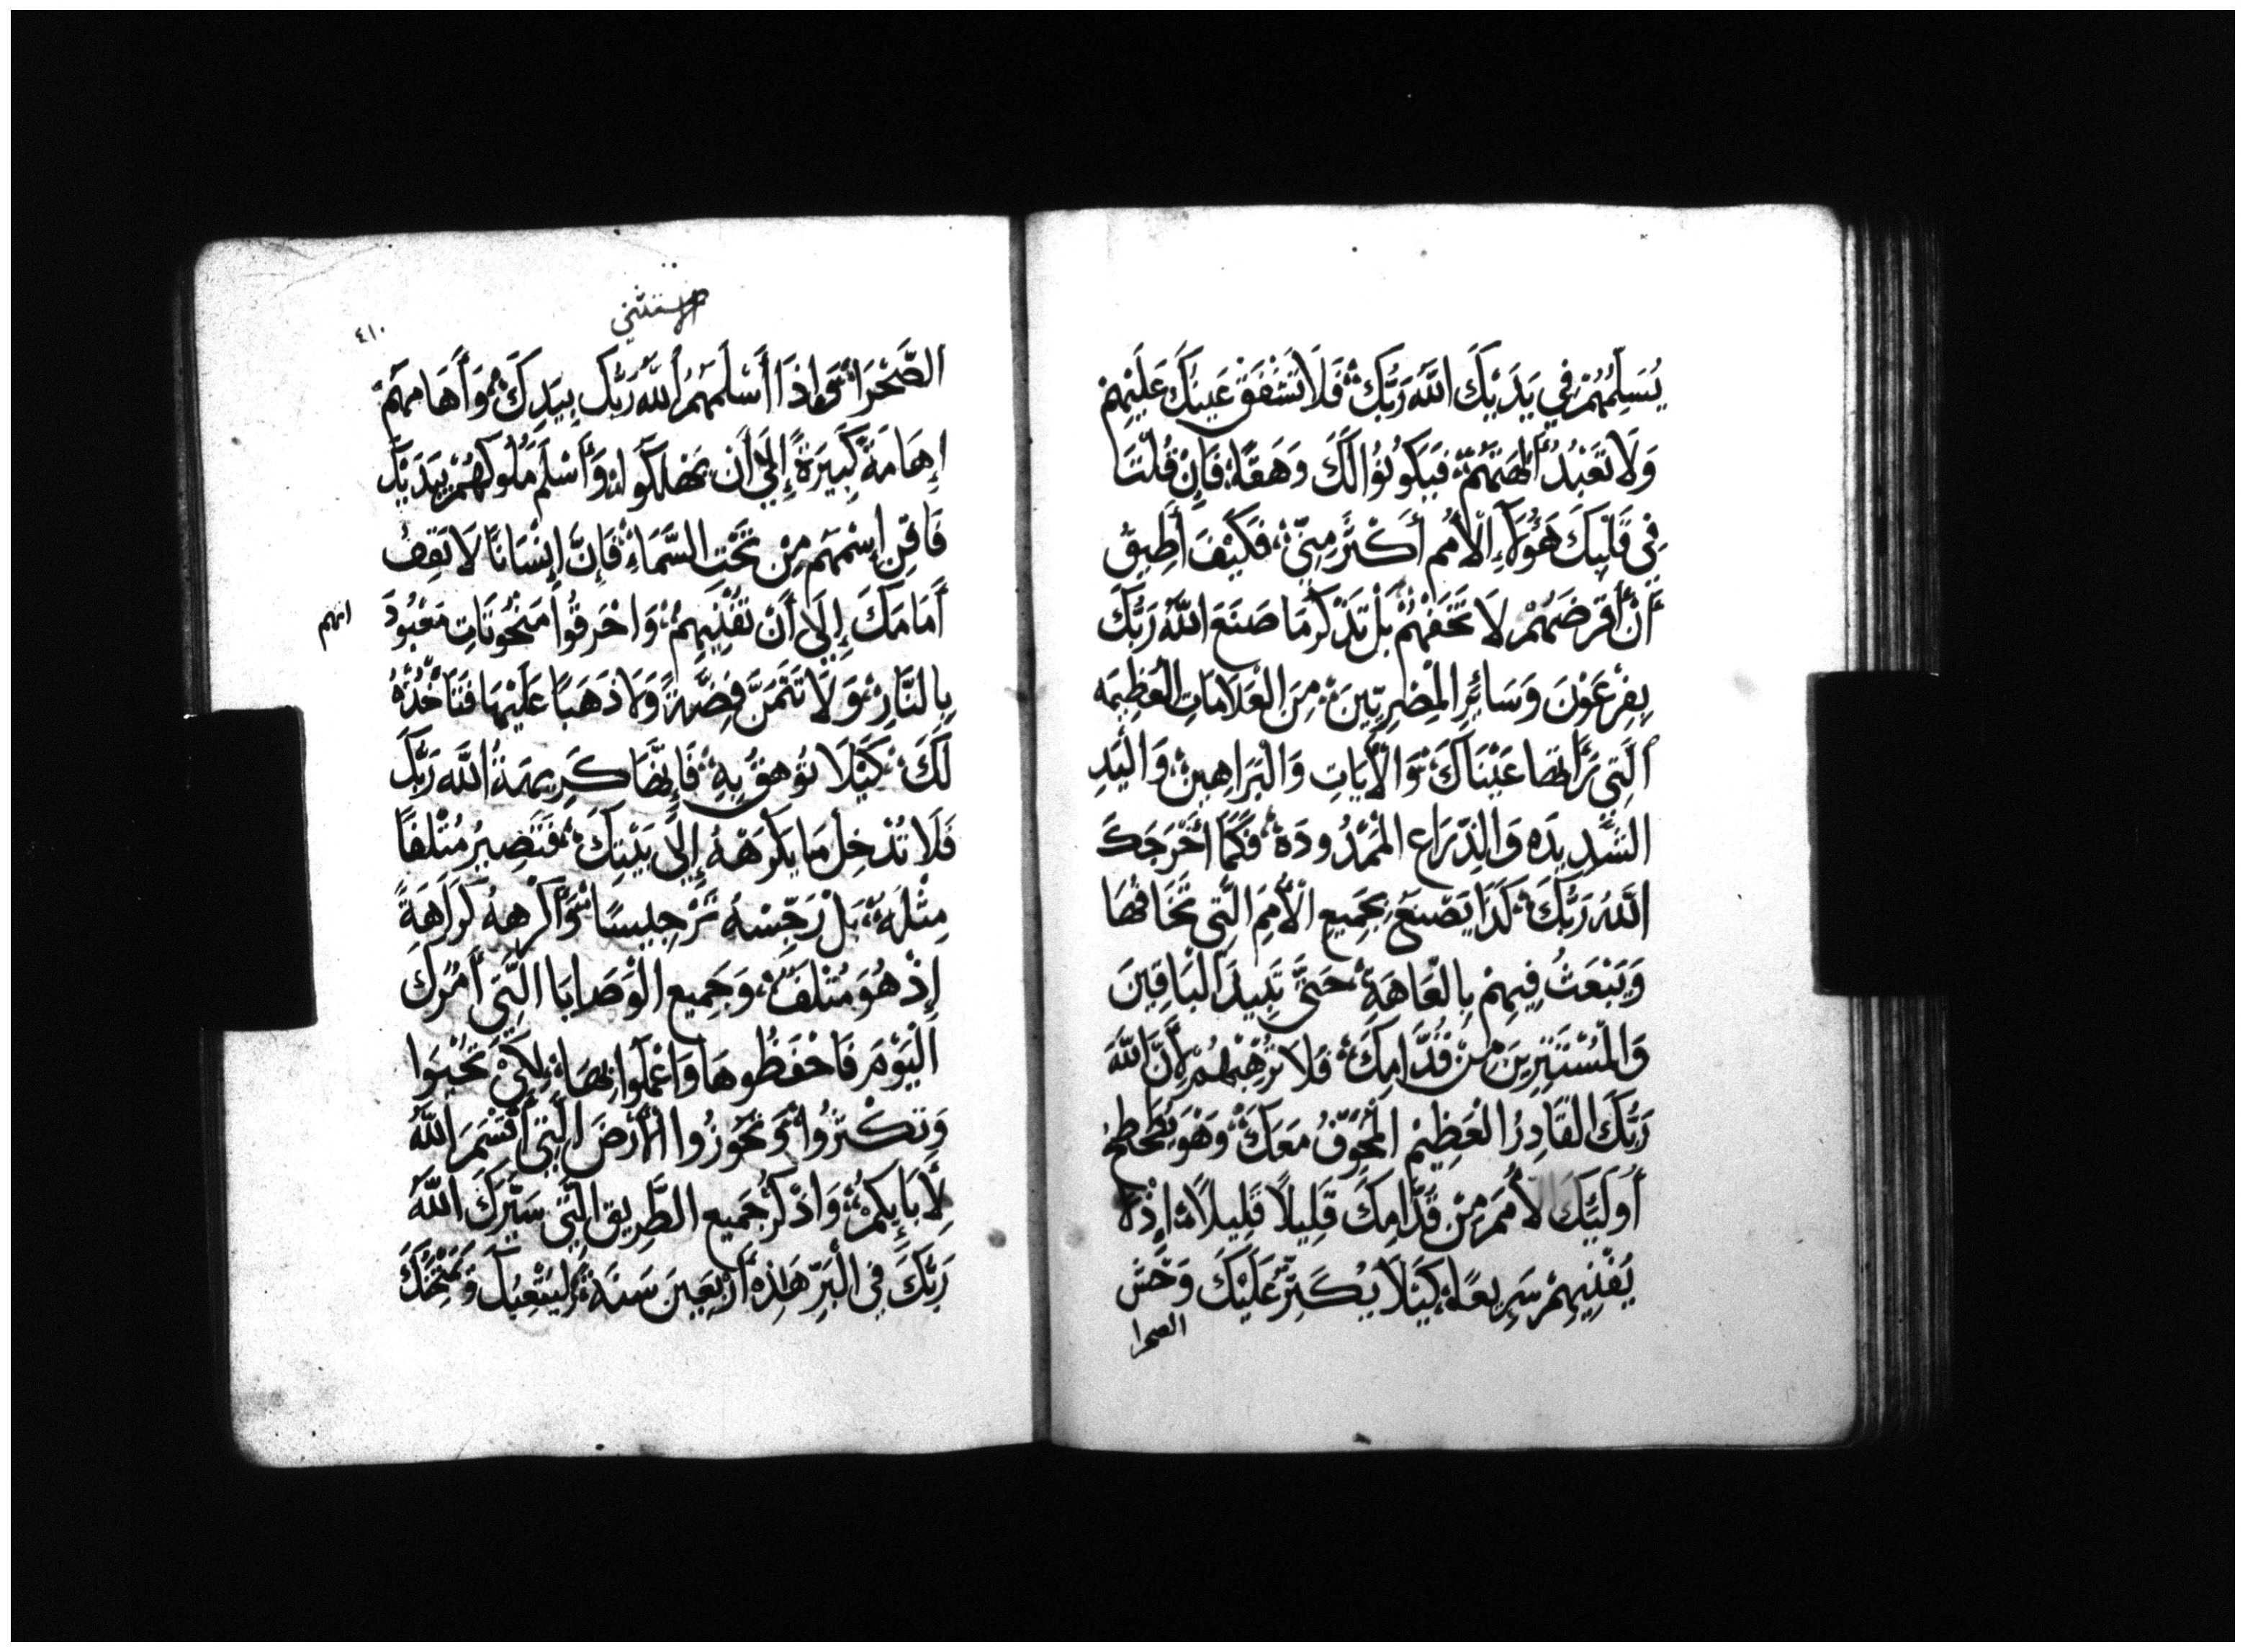 يُسَلِّمُهُمْ فِي يَدَيْكَ اللهُ رَبُّكَ فَلَا تَشْفَقْ عَيْنَكَ عَلَيْهِمْ
وَلَا تَعْبُدْ الهَتَهُمْ فَيَكُونُوا لَكَ وَهَقًا فَإِنْ قُلْتَ
فِي قَلْبِكَ هَؤُلَآءِ الْأُمَم أَكْثَرُ مِنِّي فَكَيْفَ أُطِيقُ
أَنْ أَقْرِضَهُمْ لَا تَخَفْهُمْ بَلْ تَذْكُر مَا صَنَعَ اللهُ رَبُّكَ
بِفِرْعَوْنَ وَسَائِرِ المِصْرِيِّينَ مِنَ العَلَامَاتِ العَظِيمَه
الَّتِي رَأَتهَا عَيْنَاكَ وَالْأَيَاتِ وَالْبَرَاهِينِ وَالْيَدِ
الشَّدِيدَه وَالذِّرَاعِ الْمَمْدُودَة فَكَمَا أَخْرَجَكَ
اللهُ رَبُّكَ كَذَا يَصْنَعُ بِجَمِيعِ الْأُمَمِ الَّتِي تَخَافُهَا
وَيَبْعَثُ فِيهِمْ بِالْعَاهَةِ حَتَّى تَبِيدَ الْبَاقِينَ
وَالْمُسْتَتِرِينَ مِنْ قُدَّامِكَ فَلَا تُرْهَبْهُمْ لِأَنَّ اللهَ
رَبُّكَ القَادِرُ الْعَظِيْمِ الْمُخَوِّفُ مَعَكَ وَهُوَ يُطَحْطِحُ
أُولَئِكَ الأُمَمَ مِنْ قُدَّامِكَ قَلِيلًا قَلِيلًا إِذْ لَا
يُفْنِيهِمْ سَرِيعًا كَيْلَا يُكَثِّرُ عَلَيْكَ وَحْش
الصحرا
الاستثني
٤١٠
الصَّحْرَاءِ وَإِذَا أَسْلَمَهُمُ اللهُ رَبُّكَ بِيَدِكَ وَأَهَامهُمْ
إِهَامَةً كَبِيرَةً إِلَى أَن يَهْلِكُوا وَأَسْلَمَ مُلُوكَهُمْ بِيَدَيْكَ
فَافْنِ إِسْمَهُم مِنْ تَحْتِ السَّمَاءِ فَإِنَّ إِنْسَانًا لَا يَقِفُ
أَمَامَكَ إِلَى أَنْ تُفْنِيهِمْ وَاحْرِقُوا مَنْحُوتَاتِ مَعْبُودَ
اتهم
بِالنَّارِ وَلَا تَتَمَنَّ فِضَّةً وَلَا ذَهَبًا عَلَيْهَا فَتَأْخُذُهُ
لَكَ كَيْلَا تُوهَقُ بِهِ فَإِنَّهَا كَرِيهَةُ اللهِ رَبِّكَ
فَلَا تُدْخِل مَا يَكْرَهْهُ إِلَى بَيْتِكَ فَتَصِيرُ مُتْلَفًا
مِثْلَهُ بَلْ رَجِّسْهُ تَرْجِيسًا وَأَكْرِههُ كَرَاهَةً
إِذْ هُوَ مُتْلَفٌ وَجَمِيع الْوَصَايَا الَّتِي أَمُرُكَ
الْيَوْمَ فَاحْفَظُوهَا وَاعْمَلُوا بِهَا لِكَيْ تَحْيَوْا
وَتَكْثَرُوا وَتَحُوزُوا الْأَرْضَ الَّتِي أَقْسَمَ اللهُ
لِأَبَائِكُمْ وَاذْكُرْ جَمِيعَ الطَّرِيقِ الَّتِي سَيَّرَكَ اللهُ
رَبُّكَ فِي الْبَرِّ هَذِهِ أَرْبَعِينَ سَنَةً لِيُتْعِبَكَ وَيَمْتَحِنُكَ